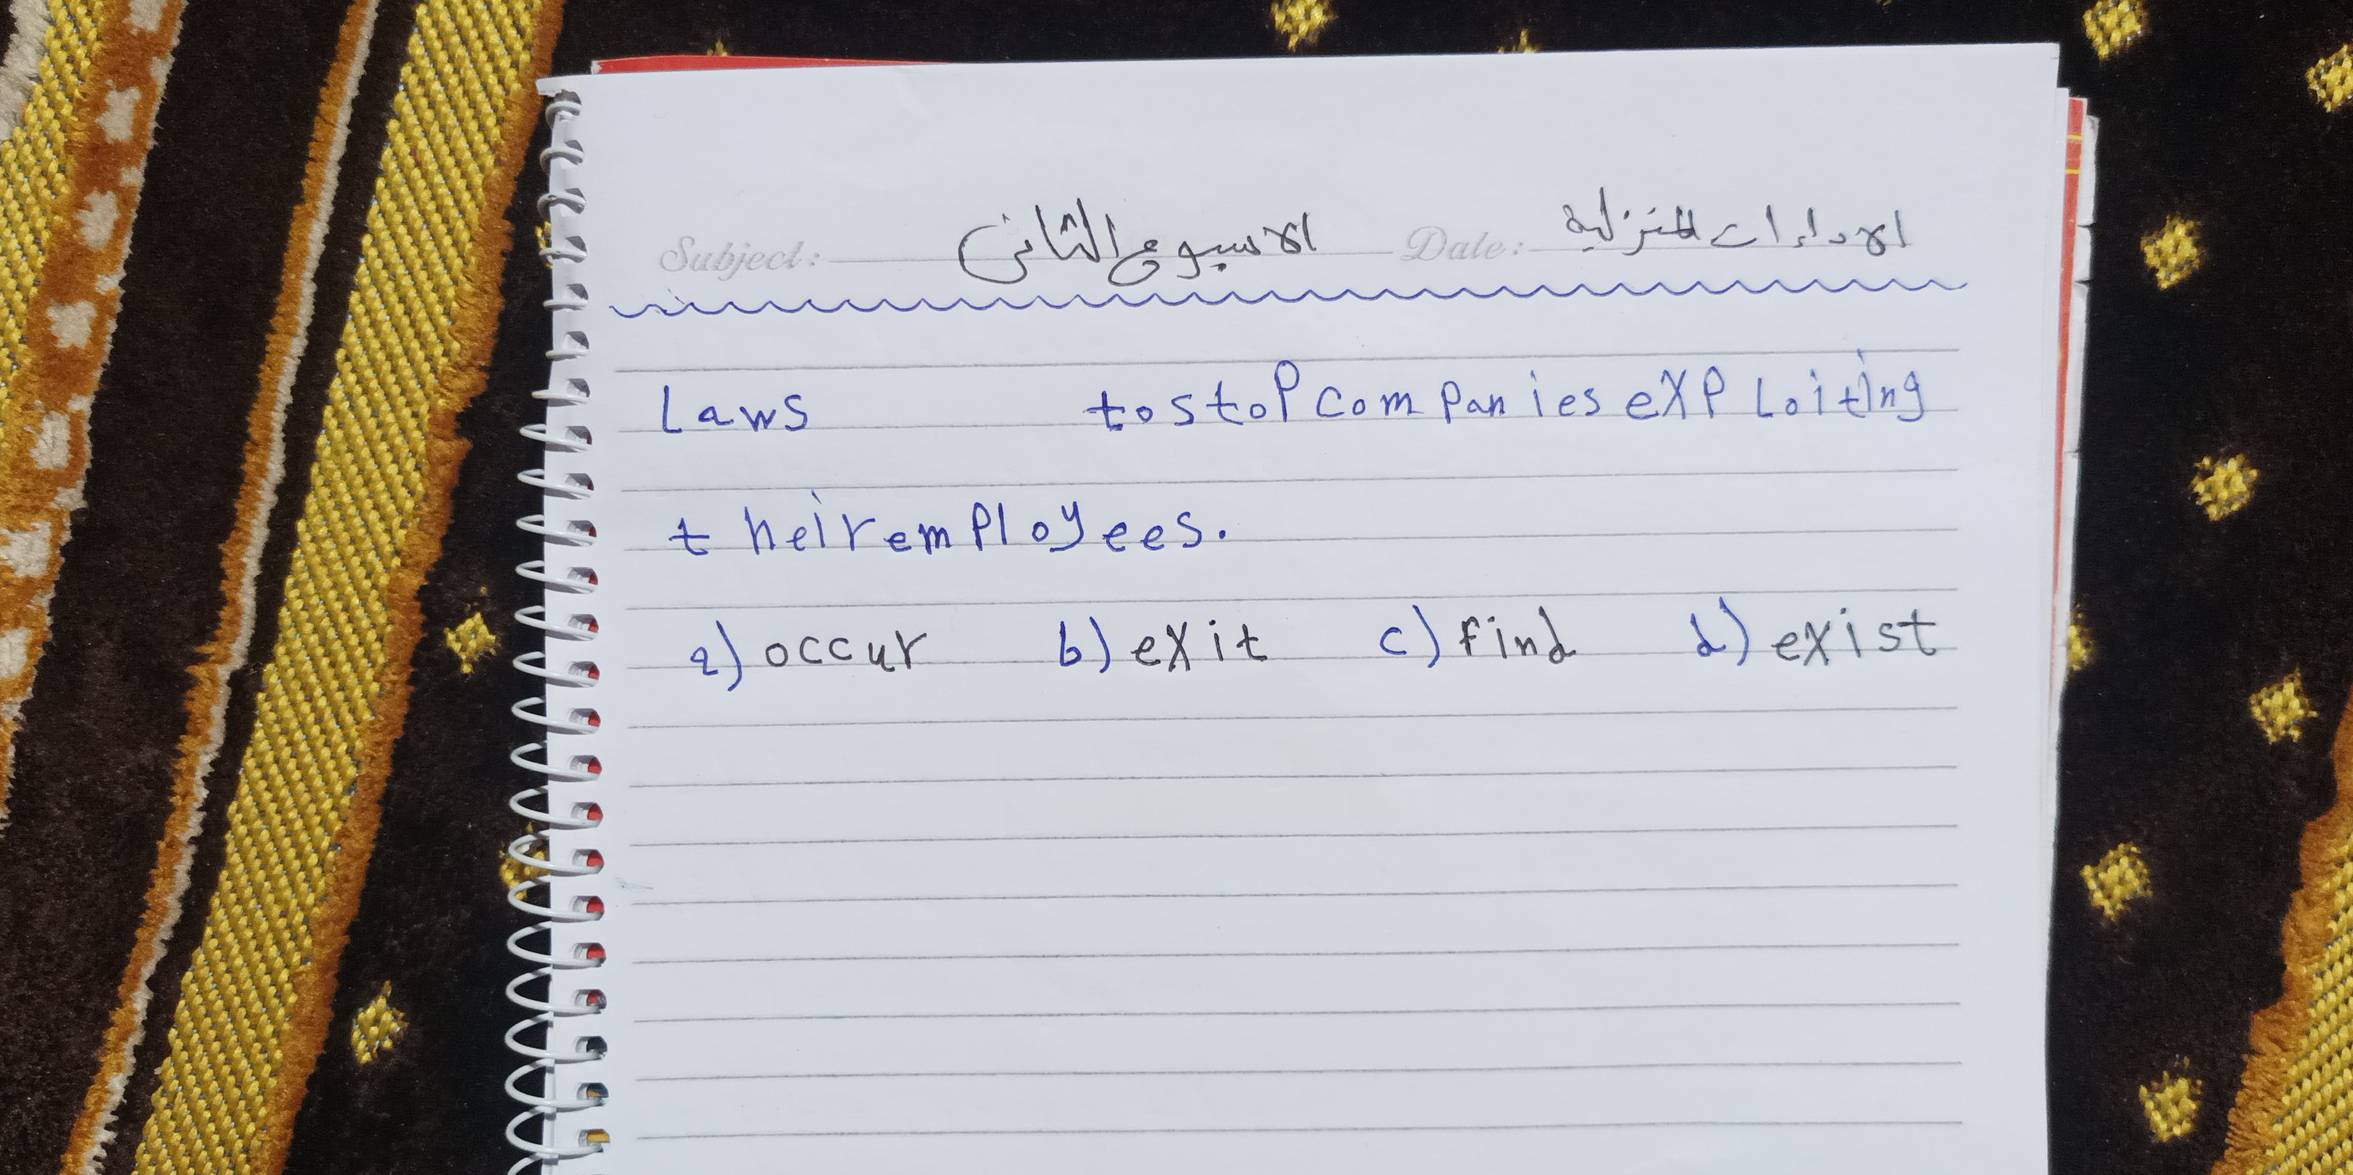 Subject: الاسبوع الثانى Date: الاداءات المنزلية
Laws to stop companies exploiting
their employees.
a) occur b) exit c) find d) exist